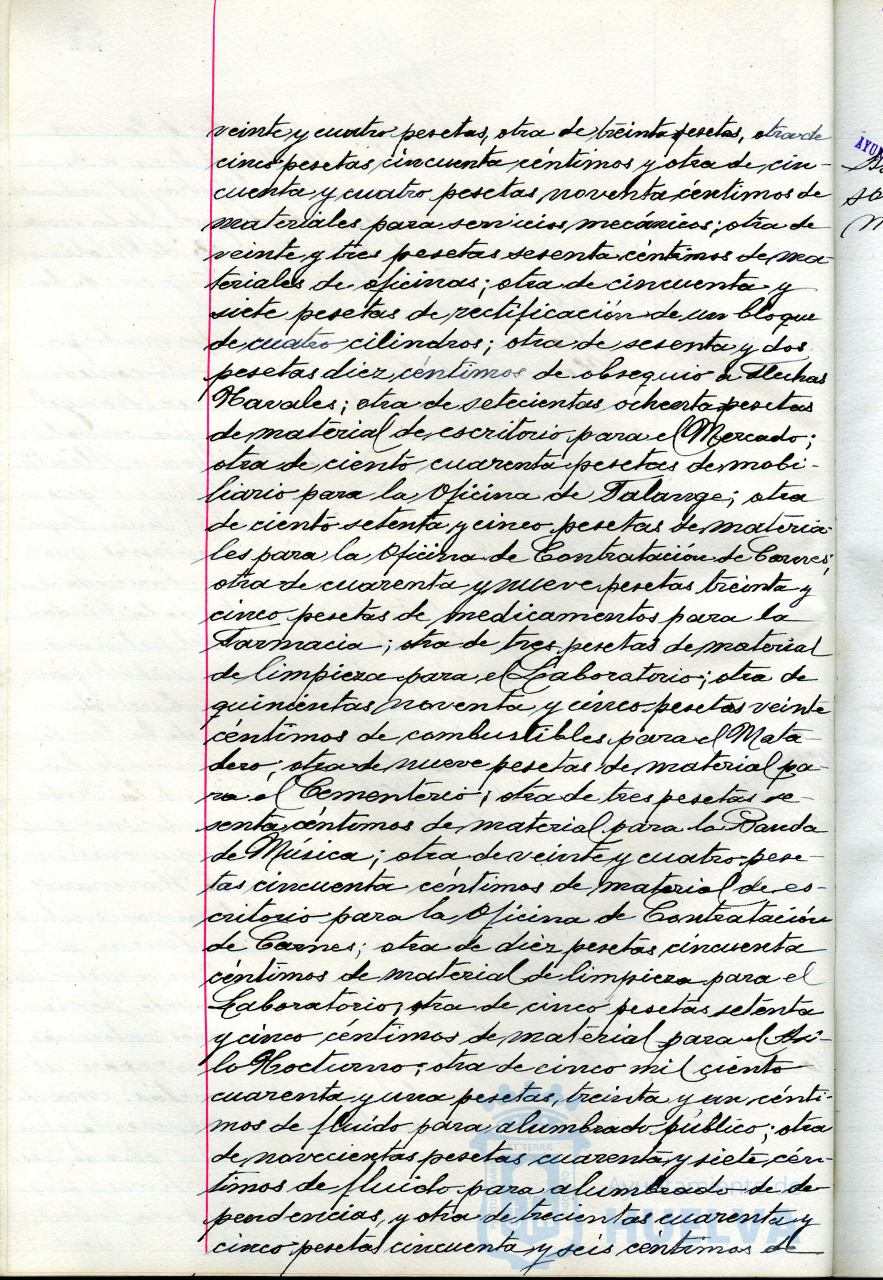 veinte y cuatro pesetas, otra de treinta pesetas, otra de
cinco pesetas cincuenta céntimos y otra de cin-
cuenta y cuatro pesetas noventa céntimos de
materiales para servicios mecánicos; otra de
veinte y tres pesetas sesenta céntimos de ma-
teriales de oficinas; otra de cincuenta y
siete pesetas de rectificación de un bloque
de cuatro cilindros; otra de sesenta y dos
pesetas diez céntimos de obsequio a Flechas
Navales; otra de setecientas ochenta pesetas
de material de escritorio para el Mercado;
otra de ciento cuarenta pesetas de mobi-
liario para la Oficina de Falange; otra
de ciento setenta y cinco pesetas de materia-
les para la Oficina de Contratación de Carnes;
otra de cuarenta y nueve pesetas treinta y
cinco pesetas de medicamentos para la
Farmacia; otra de tres pesetas de material
de limpieza para el Laboratorio; otra de
quinientas noventa y cinco pesetas veinte
céntimos de combustibles para el Mata-
dero; otra de nueve pesetas de material pa-
ra el Cementerio; otra de tres pesetas se-
senta céntimos de material para la Banda
de Música; otra de veinte y cuatro pese-
tas cincuenta céntimos de material de es-
critorio para la Oficina de Contratación
de Carnes; otra de diez pesetas cincuenta
céntimos de material de limpieza para el
Laboratorio; otra de cinco pesetas setenta
y cinco céntimos de material para el Asi-
lo Nocturno; otra de cinco mil ciento
cuarenta y una pesetas, treinta y un cénti-
mos de fluído para alumbrado público; otra
de novecientas pesetas cuarenta y siete cén-
timos de fluido para alumbrado de de-
pendencias, y otra de trecientas cuarenta y
cinco pesetas cincuenta y seis centimos de
Ayuntamiento de
HUELVA